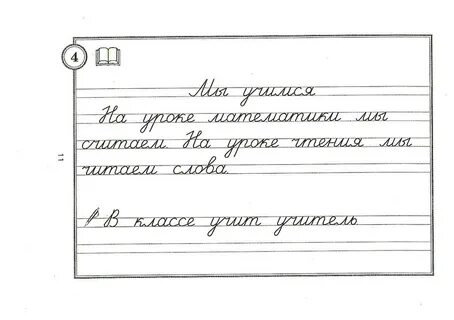 4
Мы учимся
На уроке математики мы
считаем. На уроке чтения мы
читаем слова.
В классе учит учитель
11